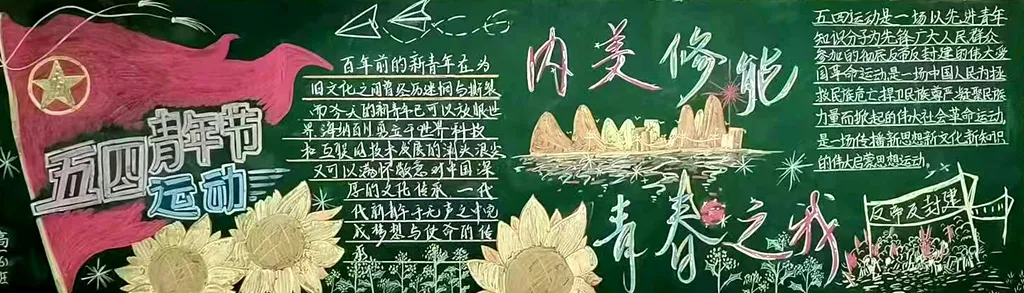 五四青年节
运动
百年前的新青年在为
旧文化之间曾经历迷惘与撕裂
而今天的新青年已可以放眼世
界海纳百川勇立于世界科技
和互联网技术发展的潮头浪尖
又可以满怀敬意对中国深
厚的文化传承一代
代新青年于无声之中完
成梦想与使命的传
承
内美修能
青春之我
五四运动是一场以先进青年
知识分子为先锋广大人民群众
参加的彻底反帝反封建的伟大爱
国革命运动是一场中国人民为拯
救民族危亡捍卫民族尊严凝聚民族
力量而掀起的伟大社会革命运动,
是一场传播新思想新文化新知识
的伟大启蒙思想运动。
反帝反封建
高
班